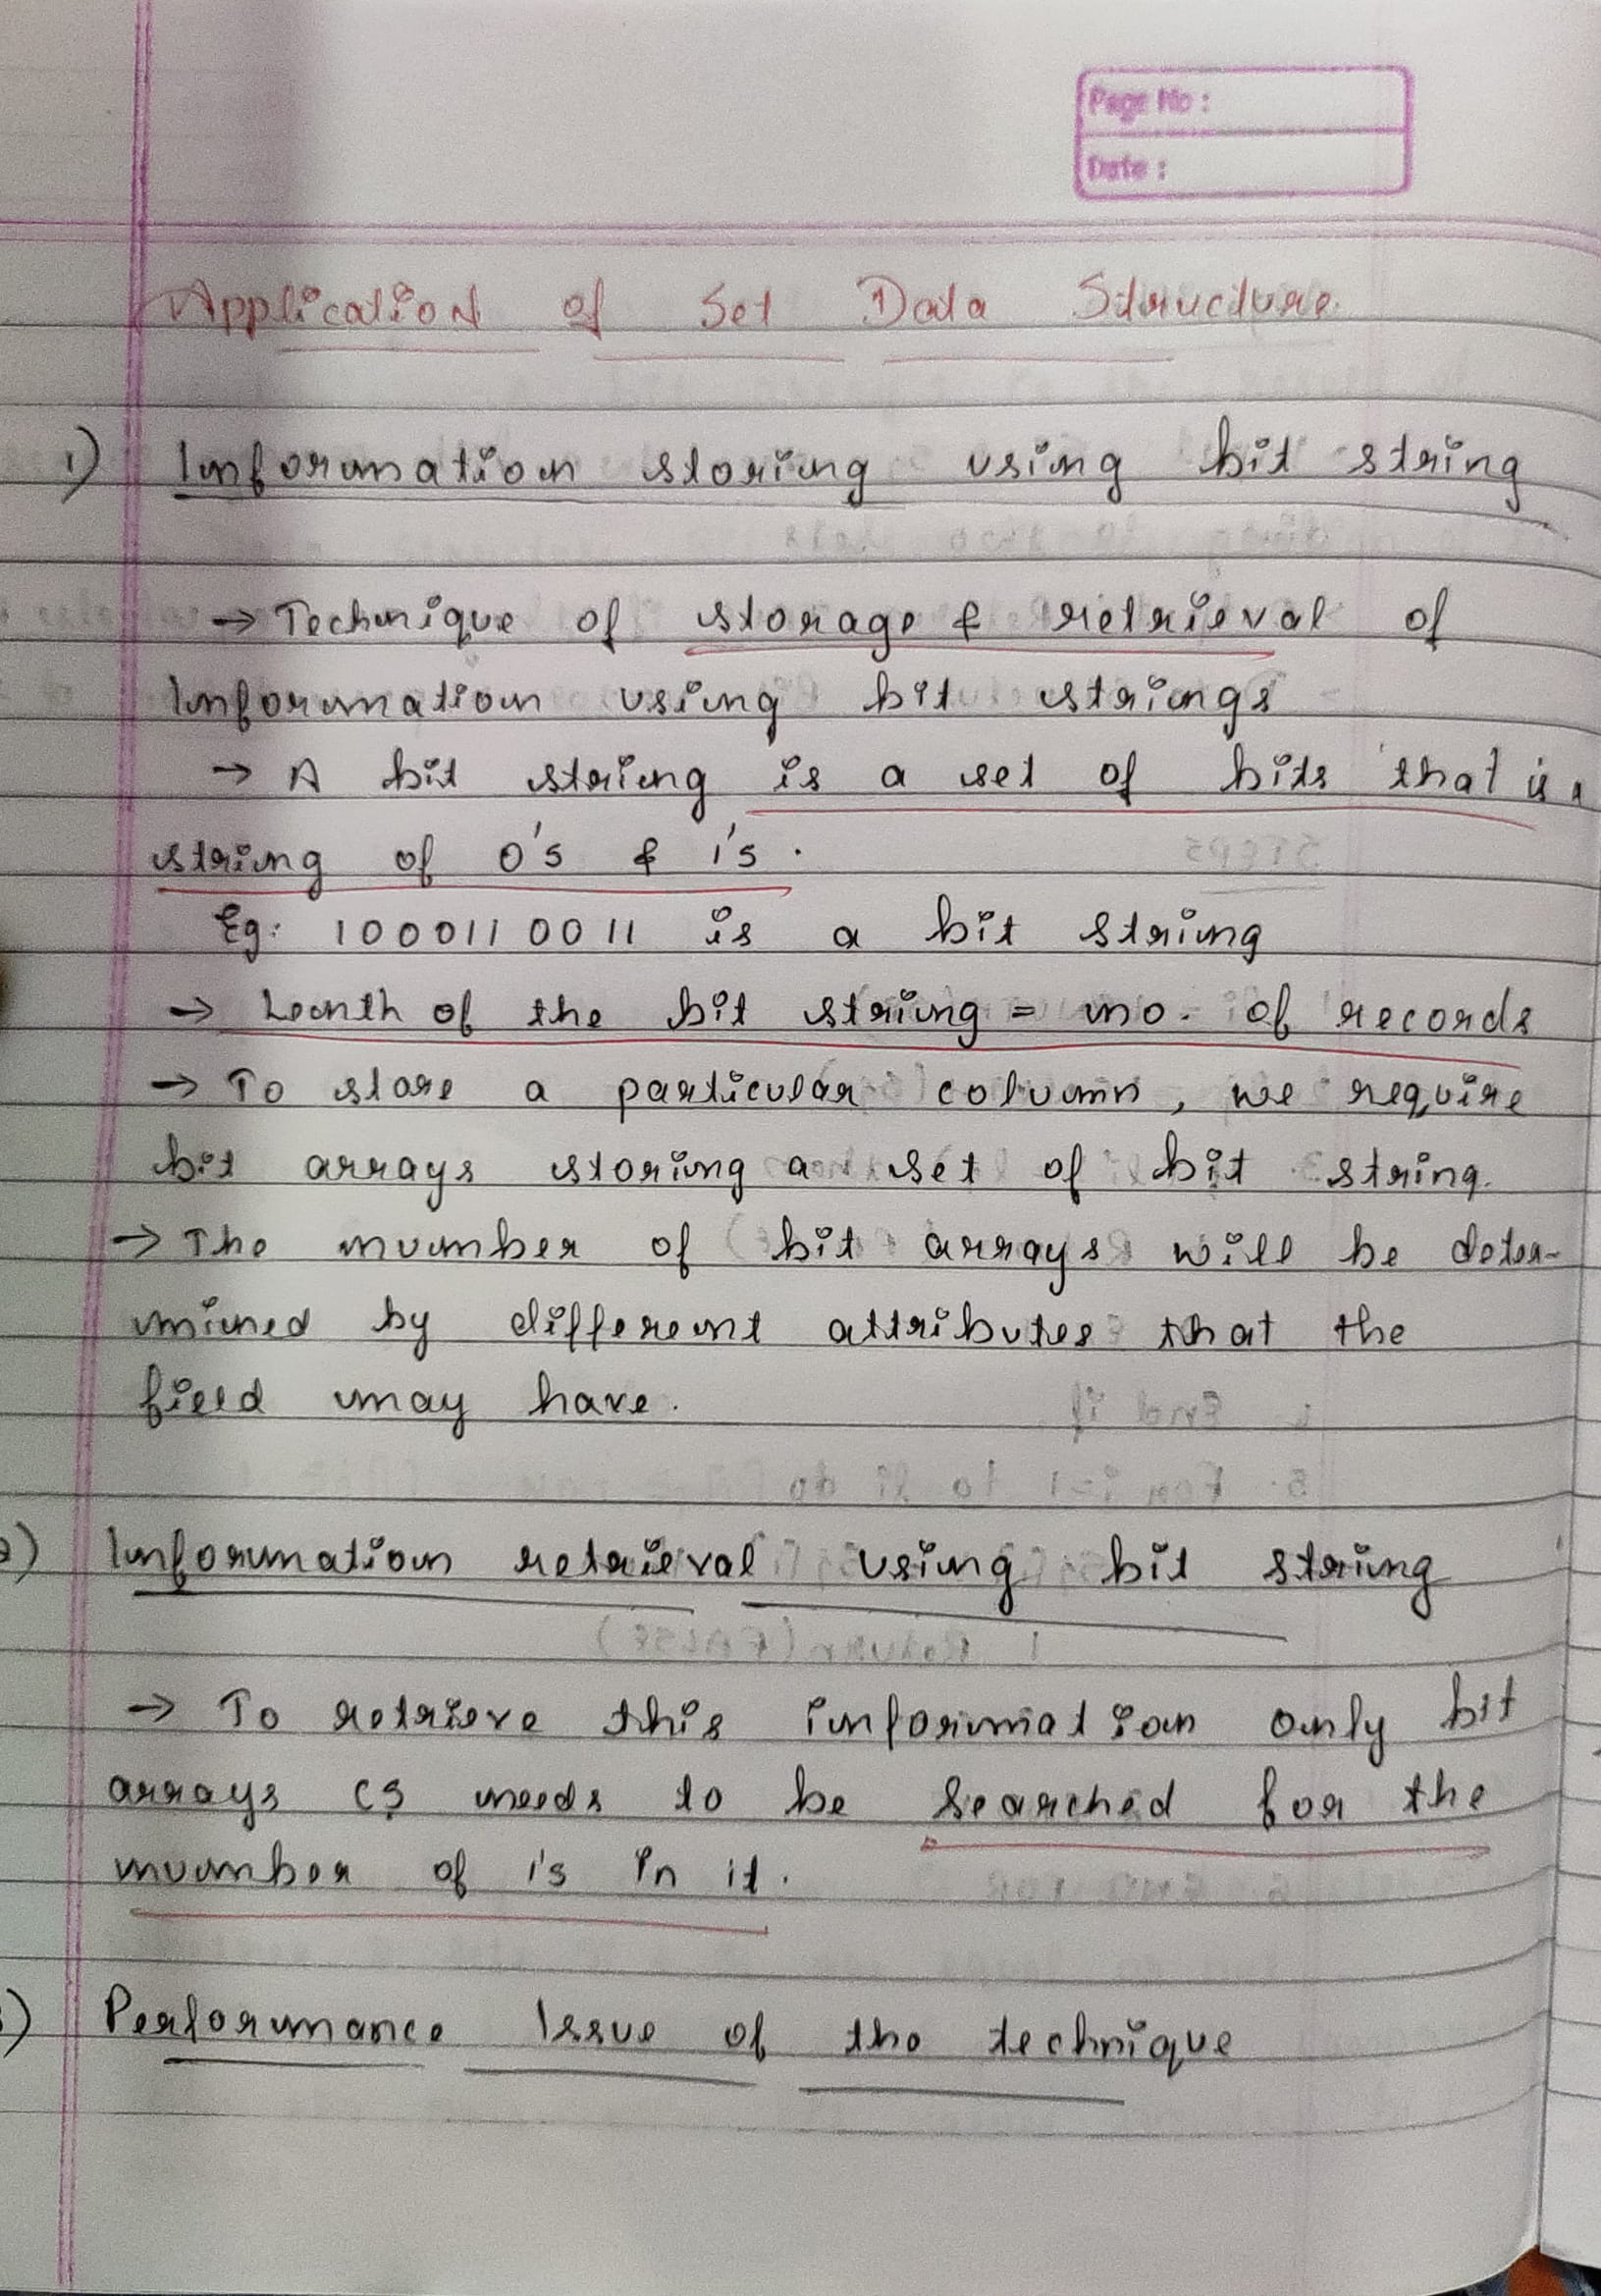 Page No :
Date :
Application of Set Data Structure
1) Information storing using bit string
→ Technique of storage & retrieval of
Information using bit strings
→ A bit string is a set of bits that is a
string of 0's & 1's.
Eg: 1000110011 is a bit string
→ Leanth of the bit string = no. of records
→ To store a particular column, we require
bit arrays storing a set of bit string.
→ The number of bit arrays will be deter-
mined by different attributes that the
field may have.
2) Information retrieval using bit string
→ To retrieve this information only bit
arrays CS needs to be searched for the
number of 1's in it.
) Performance Issue of the technique